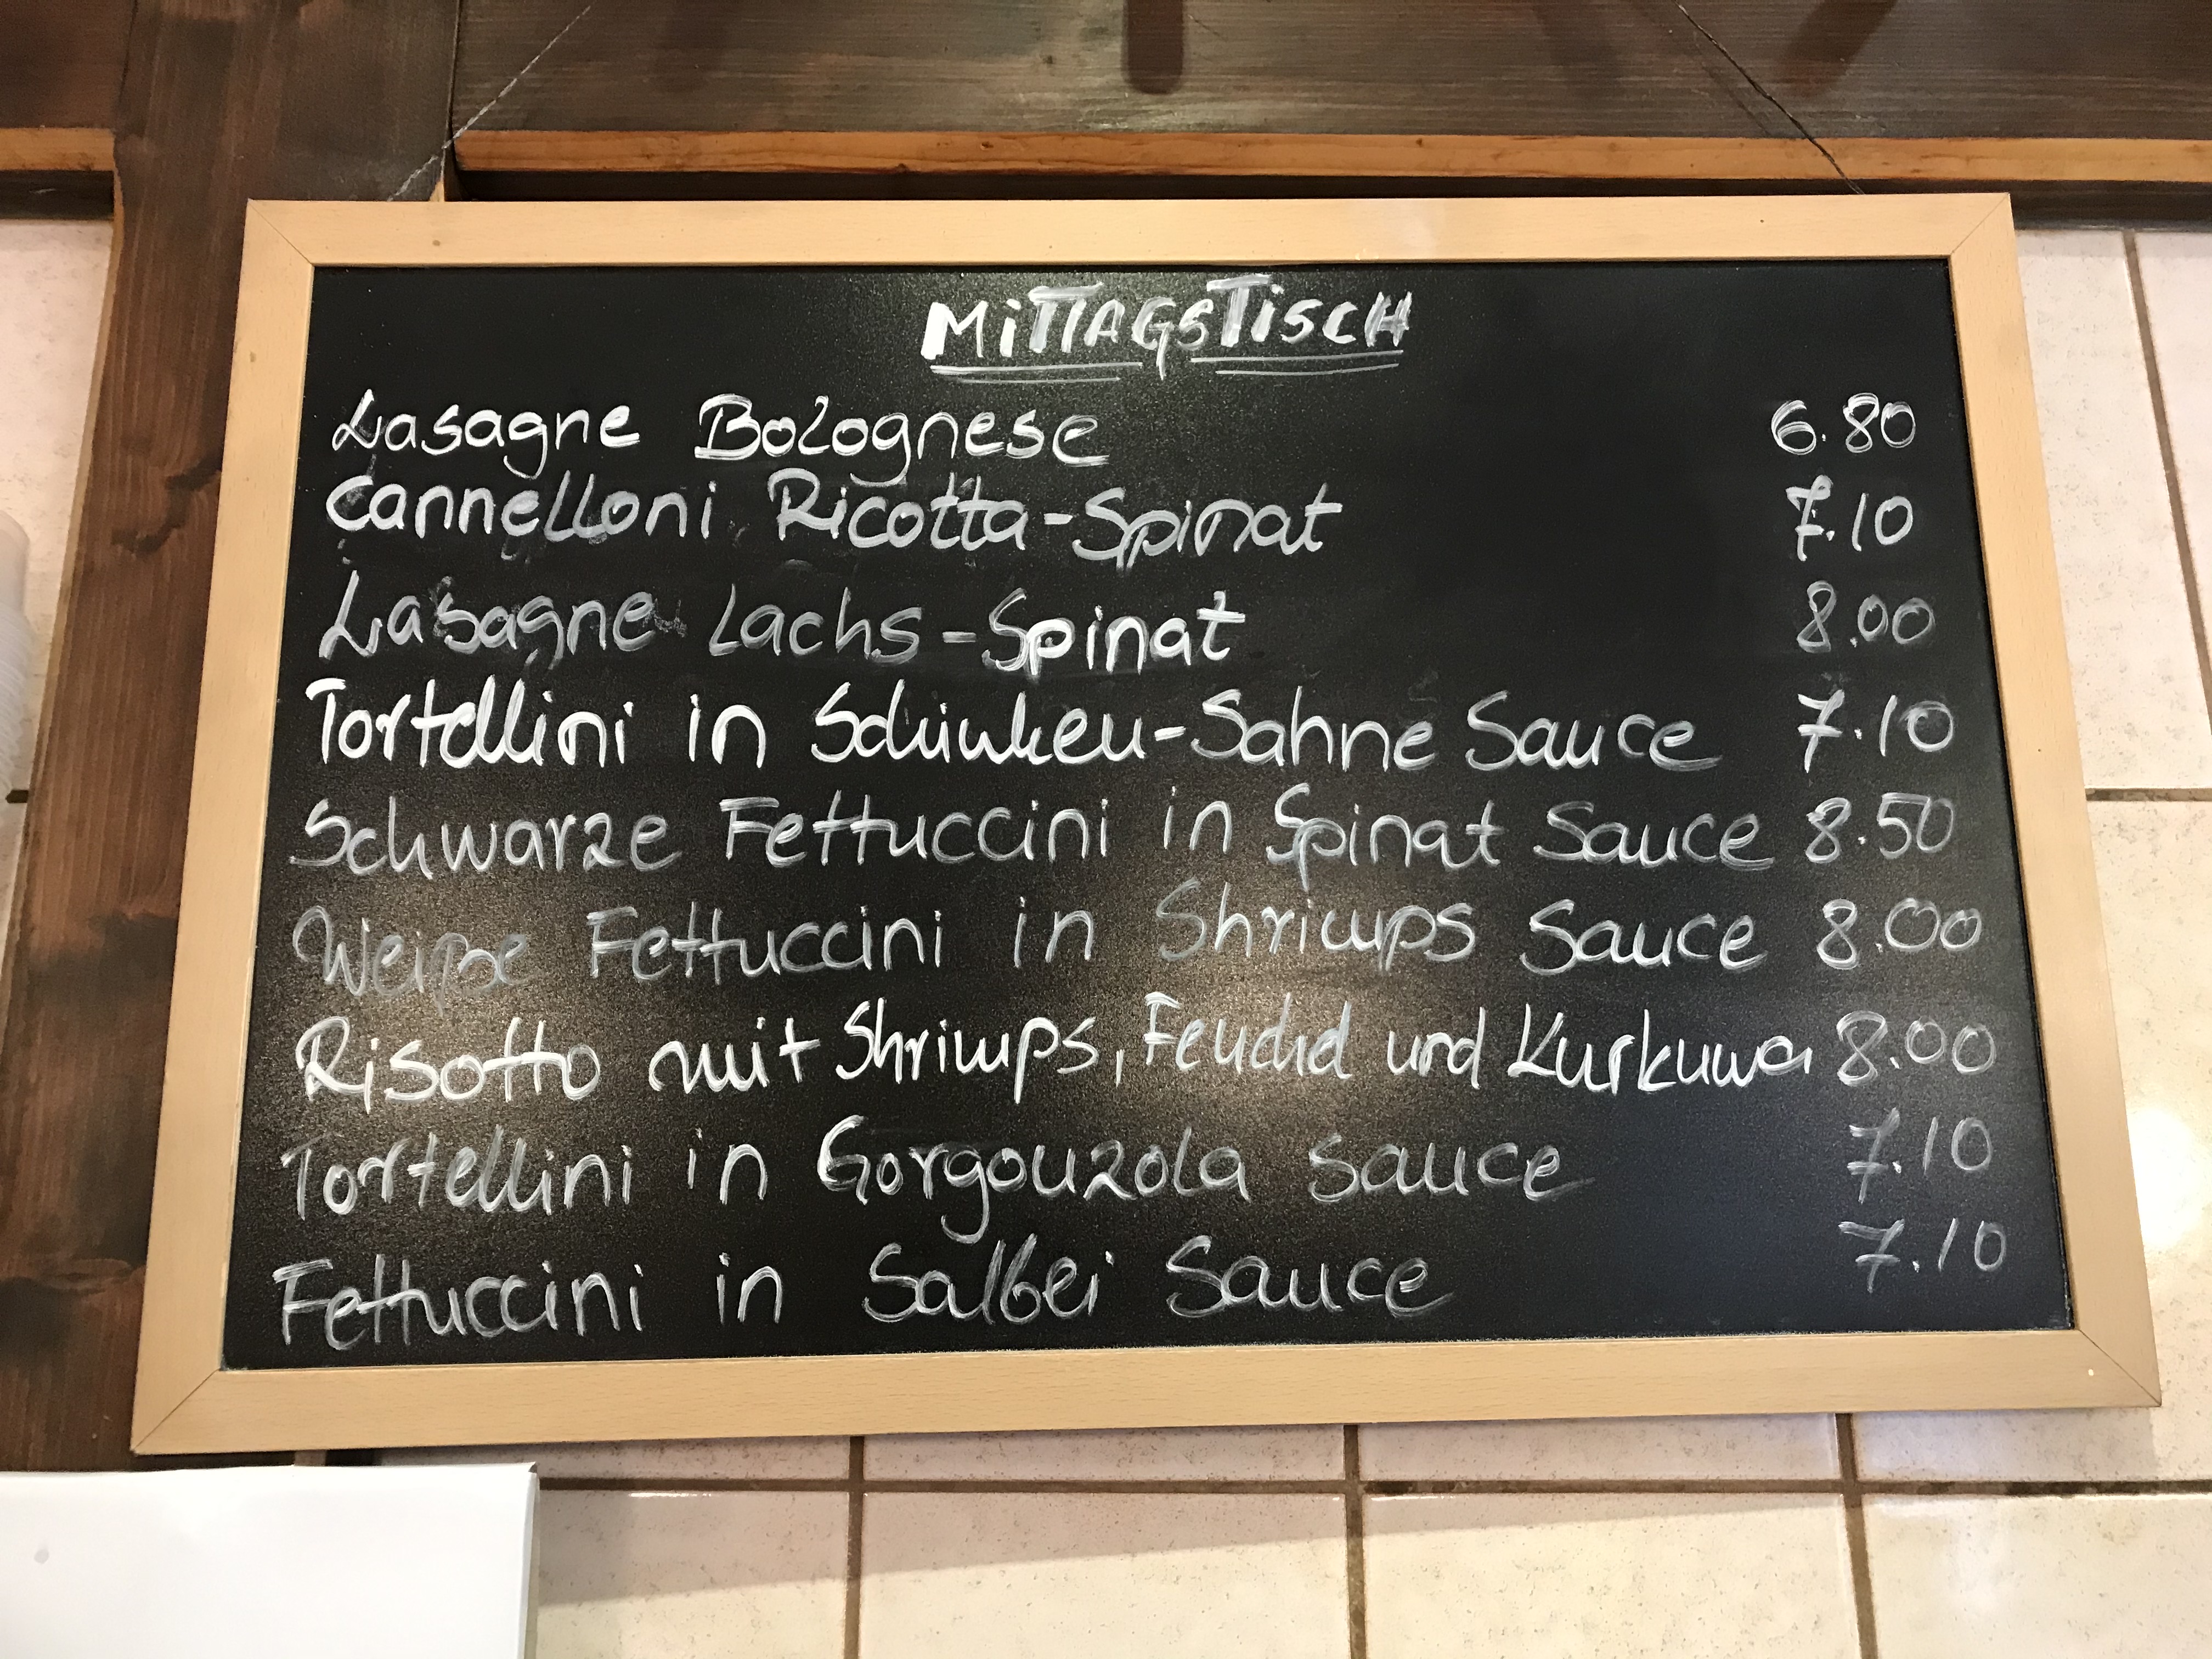 MITTAGSTISCH
Lasagne Bolognese 6.80
Cannelloni Ricotta-Spinat 7.10
Lasagne Lachs-Spinat 8.00
Tortellini in Schinken-Sahne Sauce 7.10
Schwarze Fettuccini in Spinat Sauce 8.50
Weiße Fettuccini in Shrimps Sauce 8.00
Risotto mit Shrimps, Fenchel und Kurkuma 8.00
Tortellini in Gorgonzola Sauce 7.10
Fettuccini in Salbei Sauce 7.10